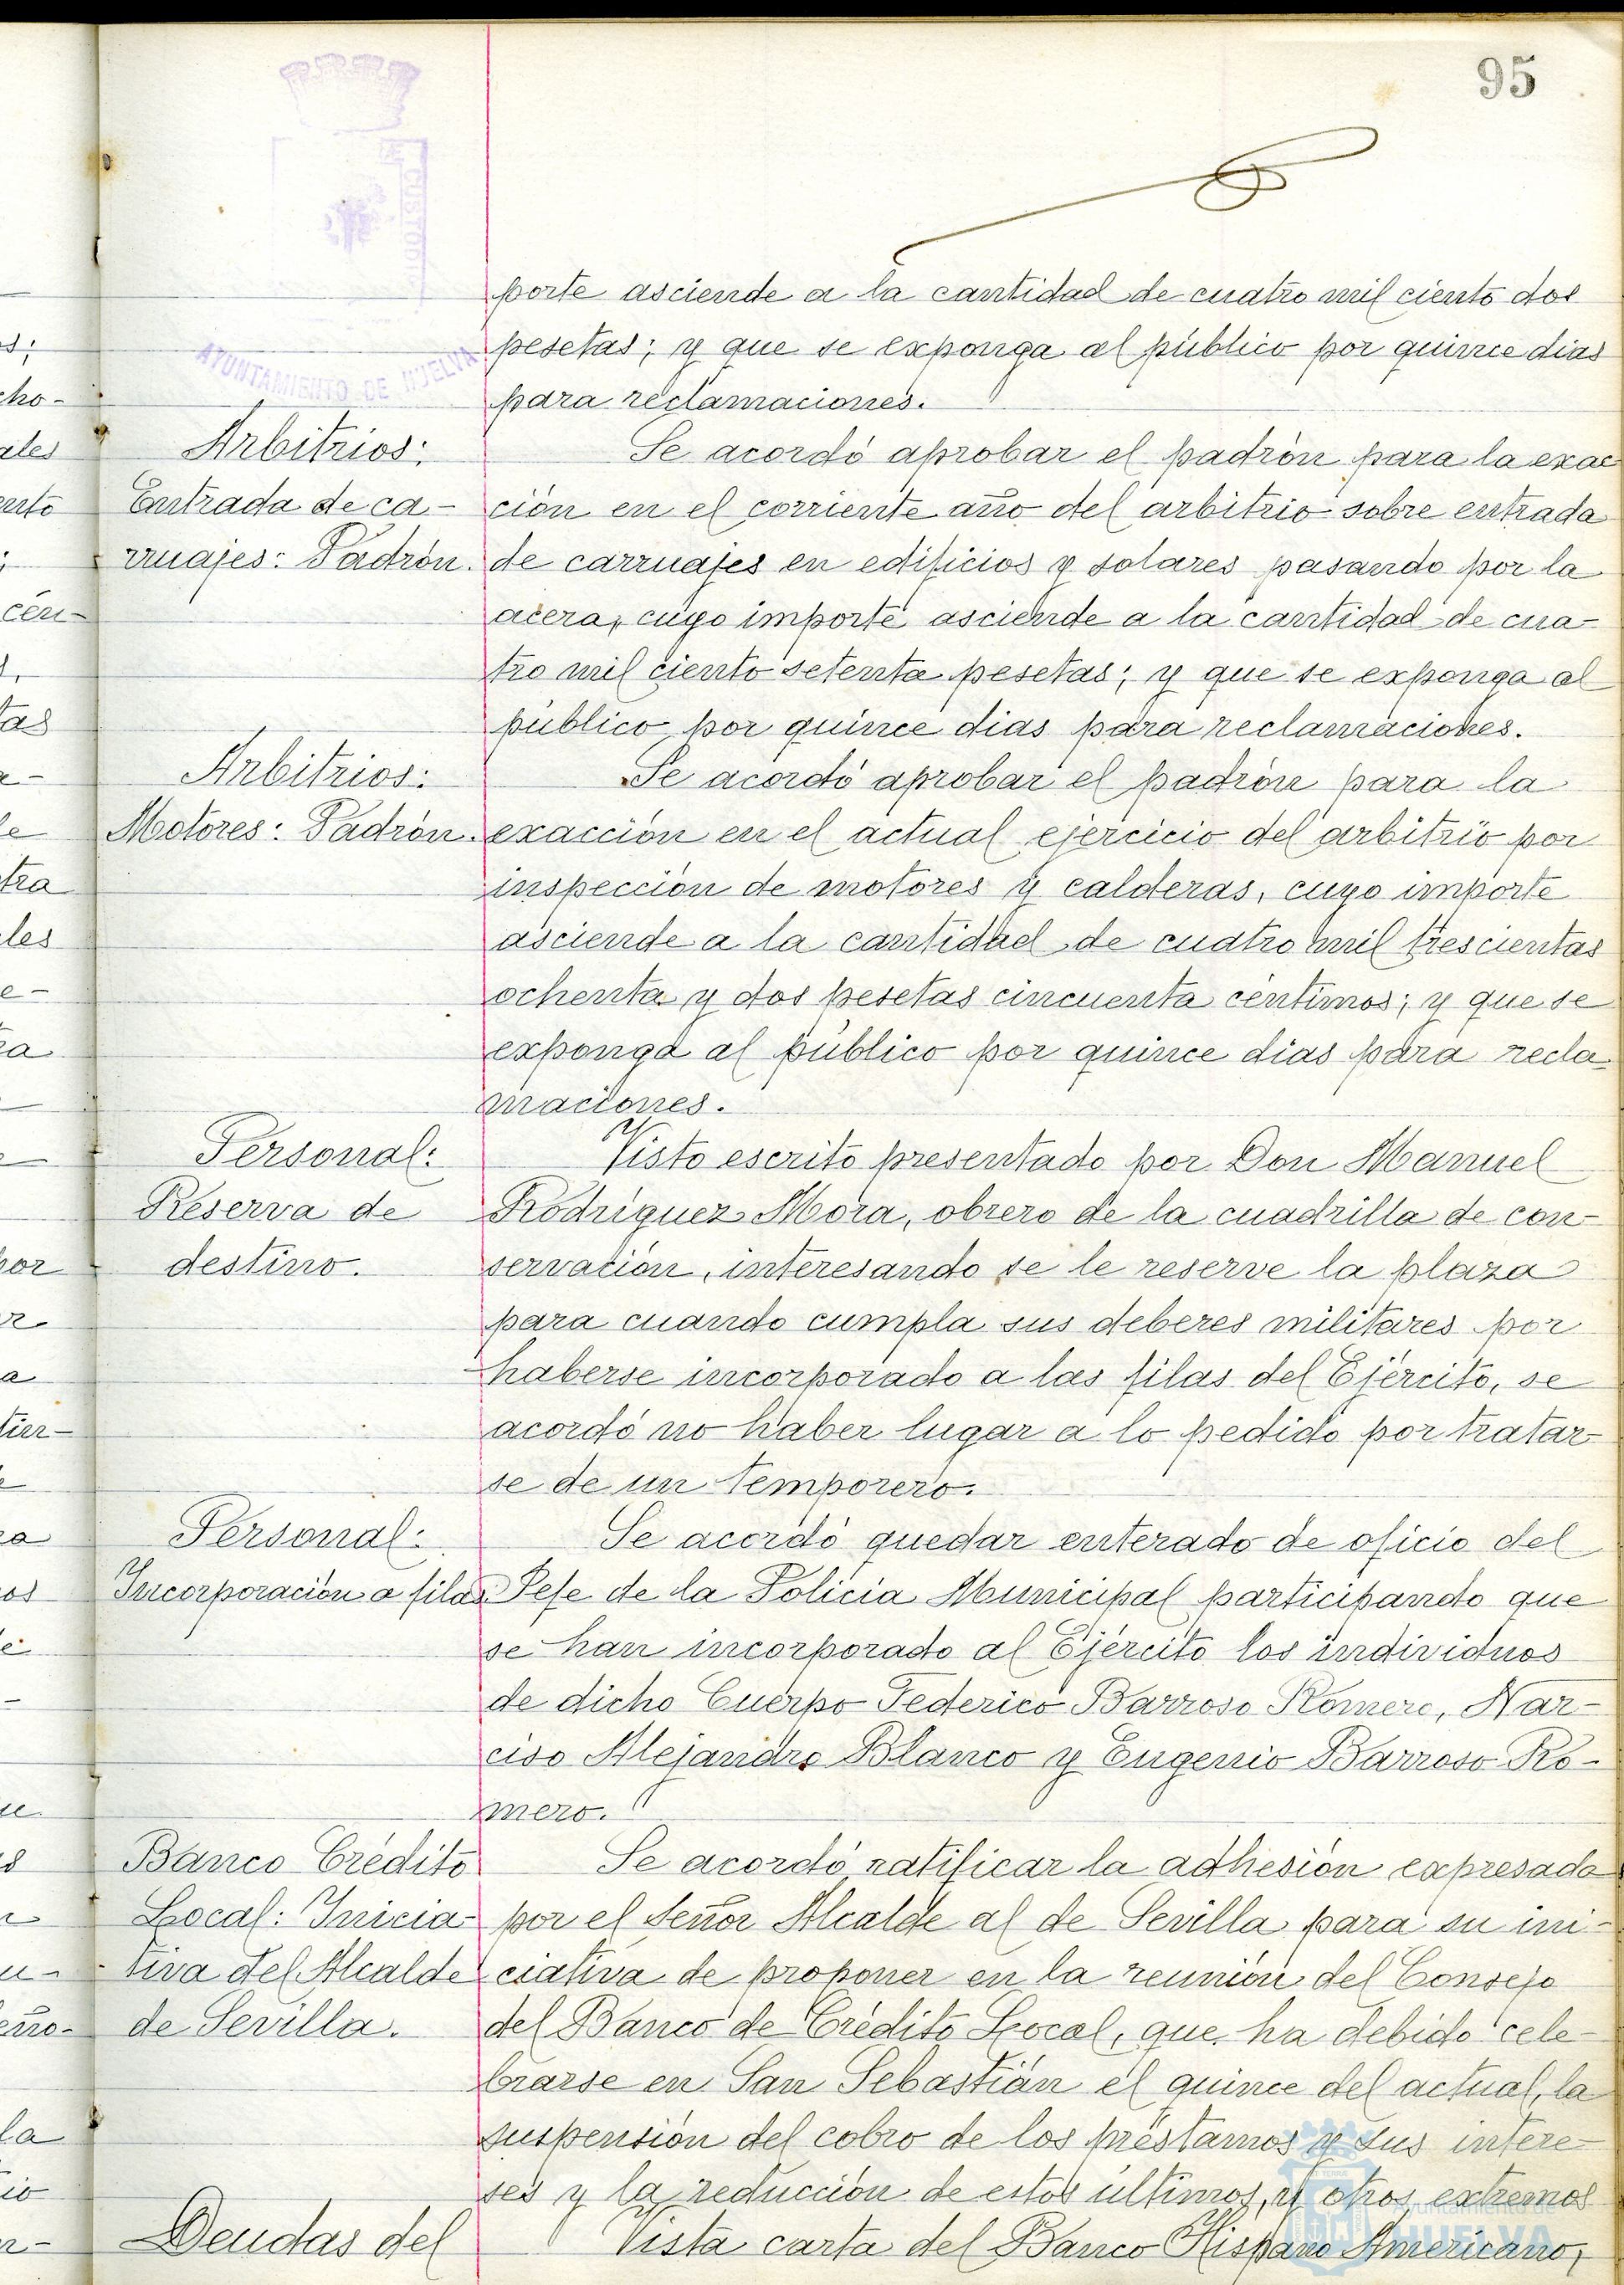 95
AYUNTAMIENTO DE HUELVA
porte asciende a la cantidad de cuatro mil ciento dos
pesetas; y que se exponga al público por quince dias
para reclamaciones.
Arbitrios:
Entrada de ca-
rruajes: Padrón.
Se acordó aprobar el padrón para la exac
ción en el corriente año del arbitrio sobre entrada
de carruajes en edificios y solares pasando por la
acera, cuyo importe asciende a la cantidad de cua-
tro mil ciento setenta pesetas; y que se exponga al
público por quince dias para reclamaciones.
Arbitrios:
Motores: Padrón.
Se acordó aprobar el padrón para la
exacción en el actual ejercicio del arbitrio por
inspección de motores y calderas, cuyo importe
asciende a la cantidad de cuatro mil trescientas
ochenta y dos pesetas cincuenta céntimos; y que se
exponga al público por quince dias para recla-
maciones.
Personal:
Reserva de
destino.
Visto escrito presentado por Don Manuel
Rodríguez Mora, obrero de la cuadrilla de con-
servación, interesando se le reserve la plaza
para cuando cumpla sus deberes militares por
haberse incorporado a las filas del Ejército, se
acordó no haber lugar a lo pedido por tratar-
se de un temporero.
Personal:
Incorporación a filas
Se acordó quedar enterado de oficio del
Jefe de la Policía Municipal participando que
se han incorporado al Ejército los individuos
de dicho Cuerpo Federico Barroso Romero, Nar-
ciso Alejandro Blanco y Eugenio Barroso Ro-
mero.
Banco Crédito
Local: Inicia-
tiva del Alcalde
de Sevilla.
Se acordó ratificar la adhesión expresada
por el Señor Alcalde al de Sevilla para su ini-
ciativa de proponer en la reunión del Consejo
del Banco de Crédito Local, que ha debido cele-
brarse en San Sebastián el quince del actual, la
suspensión del cobro de los préstamos y sus intere-
ses y la reducción de estos últimos, y otros extremos
Deudas del
Vista carta del Banco Hispano Americano,
Ayuntamiento de
HUELVA